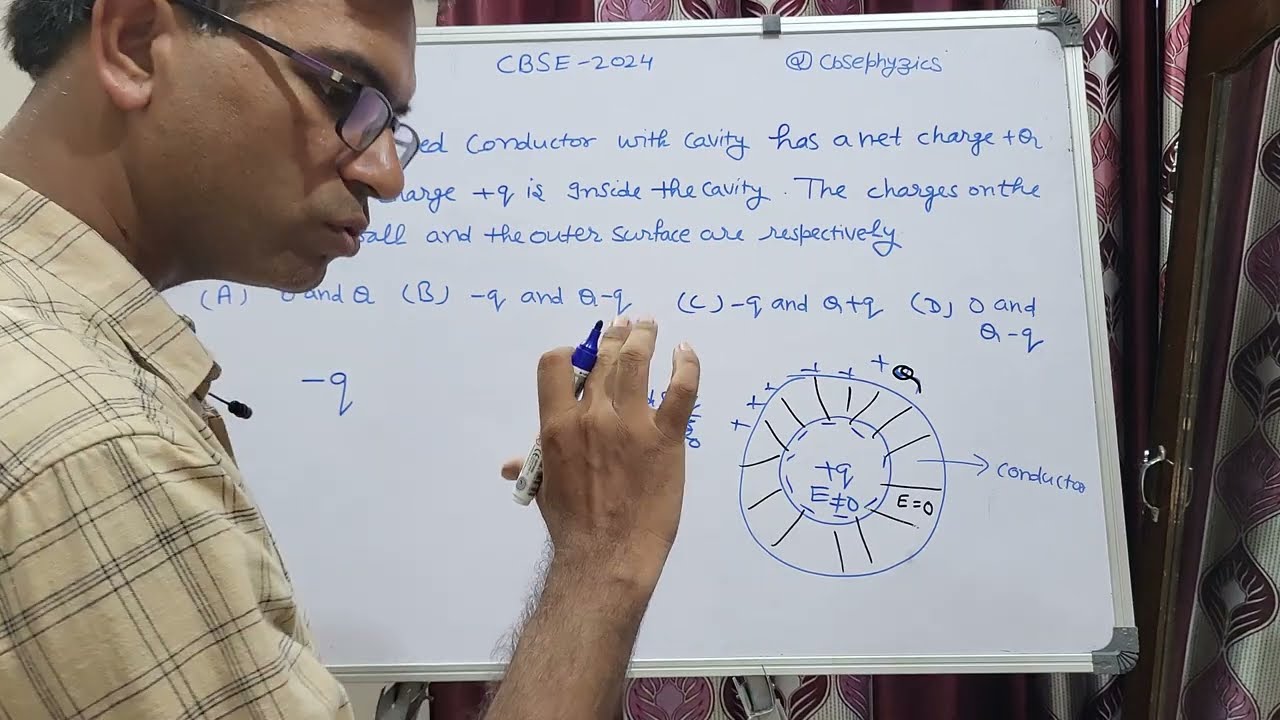 CBSE-2024
@ Cbsephyzics
ed Conductor with Cavity has a net charge +Q
harge +q is Inside the Cavity. The charges on the
all and the outer surface are respectively
(A) 0 and Q (B) -q and Q-q (C) -q and Q+q (D) 0 and
Q-q
-q
+ + + + + + Q
+q
E≠0
E=0
Conductor